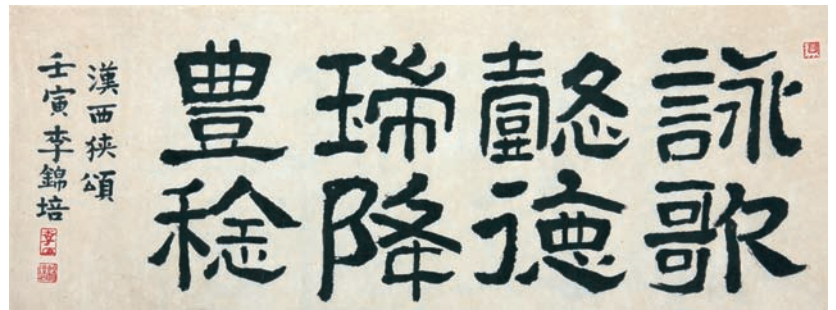 詠歌
懿德
瑞降
豊稔
漢西狹頌
壬寅李錦培